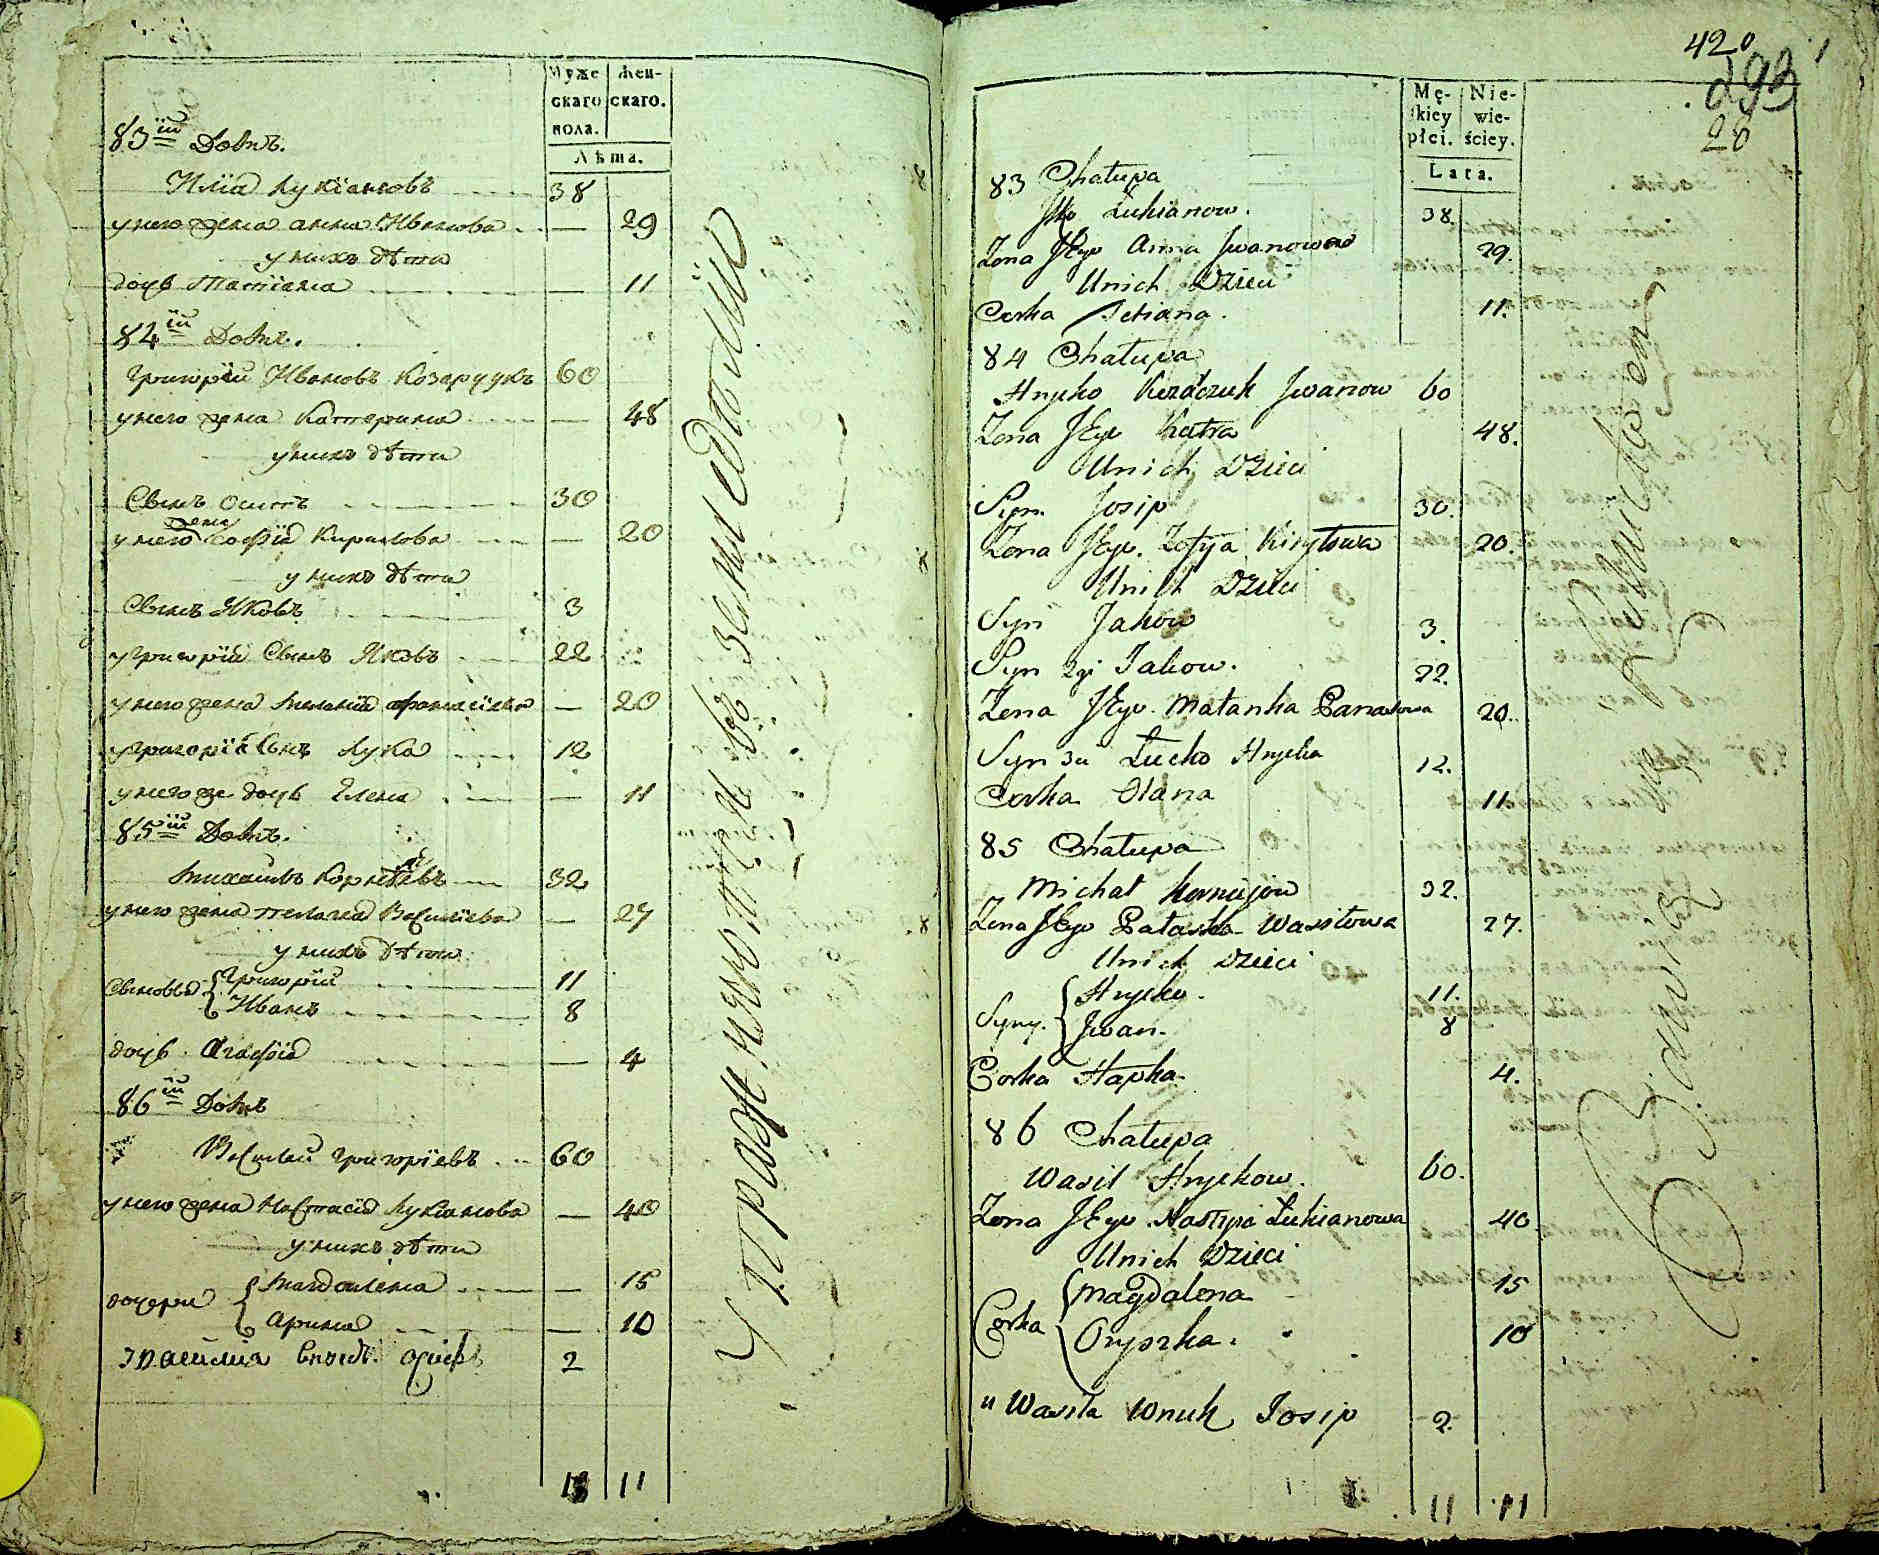 Муже
скаго
пола.
Жен-
скаго.
Лѣта.
83й Домъ.
Илїа Лукїановъ 38
у него жена анна Иванова — 29
у нихъ дѣти
дочь Татїана — 11
84й Домъ.
Григорїй Ивановъ Козарчукъ 60
у него жена Катерина — 48
у нихъ дѣти
Сынъ Осипъ 30
у него жена Софїа Кирилова — 20
у нихъ дѣти
Сынъ Яковъ 3
у Григорїя Сынъ Яковъ 22
у него жена Меланїа — 20
у Григорїя Сынъ Лука 12
у него же дочь Елена — 11
85й Домъ.
Михаилъ 32
у него жена Пелагеа Василїева — 27
у нихъ дѣти
Сыновья { Григорїй 11
Иванъ 8
дочь Агафїа — 4
86й Домъ
Василей Григорїевъ 60
у него жена Настасїа Лукїанова — 40
у нихъ дѣти
дочери { Магдалена — 15
Арина — 10
у Василиа внукъ 2
11
420
293
28
Mę-
skiey
płci.
Nie-
wie-
ściey.
Lata.
83 Chałupa
Łukianow. 38.
Zona Jego Anna Jwanowa 29.
Unich Dzieci
Corka Tetiana. 11.
84 Chałupa
Hryćko Jwanow 60
Zona Jego Katra 48.
Unich Dzieci
Syn Josip 30.
Zona Jego Zofija Kiryłowa 20.
Unich Dzieci
Syn Jakow 3.
Syn 2gi Jakow. 22.
Zona Jego Małanka Panasowa 20.
Syn 3ci Łucko Hryćka 12.
Corka Ołana 11.
85 Chałupa
Michał 32.
Zona Jego Pałaszka Wasiłowa 27.
Unich Dzieci
Syny. { Hryćko. 11.
Jwan. 8
Corka Hapka 4.
86 Chałupa
Wasil Hryćkow. 60.
Zona Jego Nastija Łukianowa 40
Unich Dzieci
Corka { Magdalena 15
Oryszka. 10
u Wasila Wnuk Josip 2.
11 11